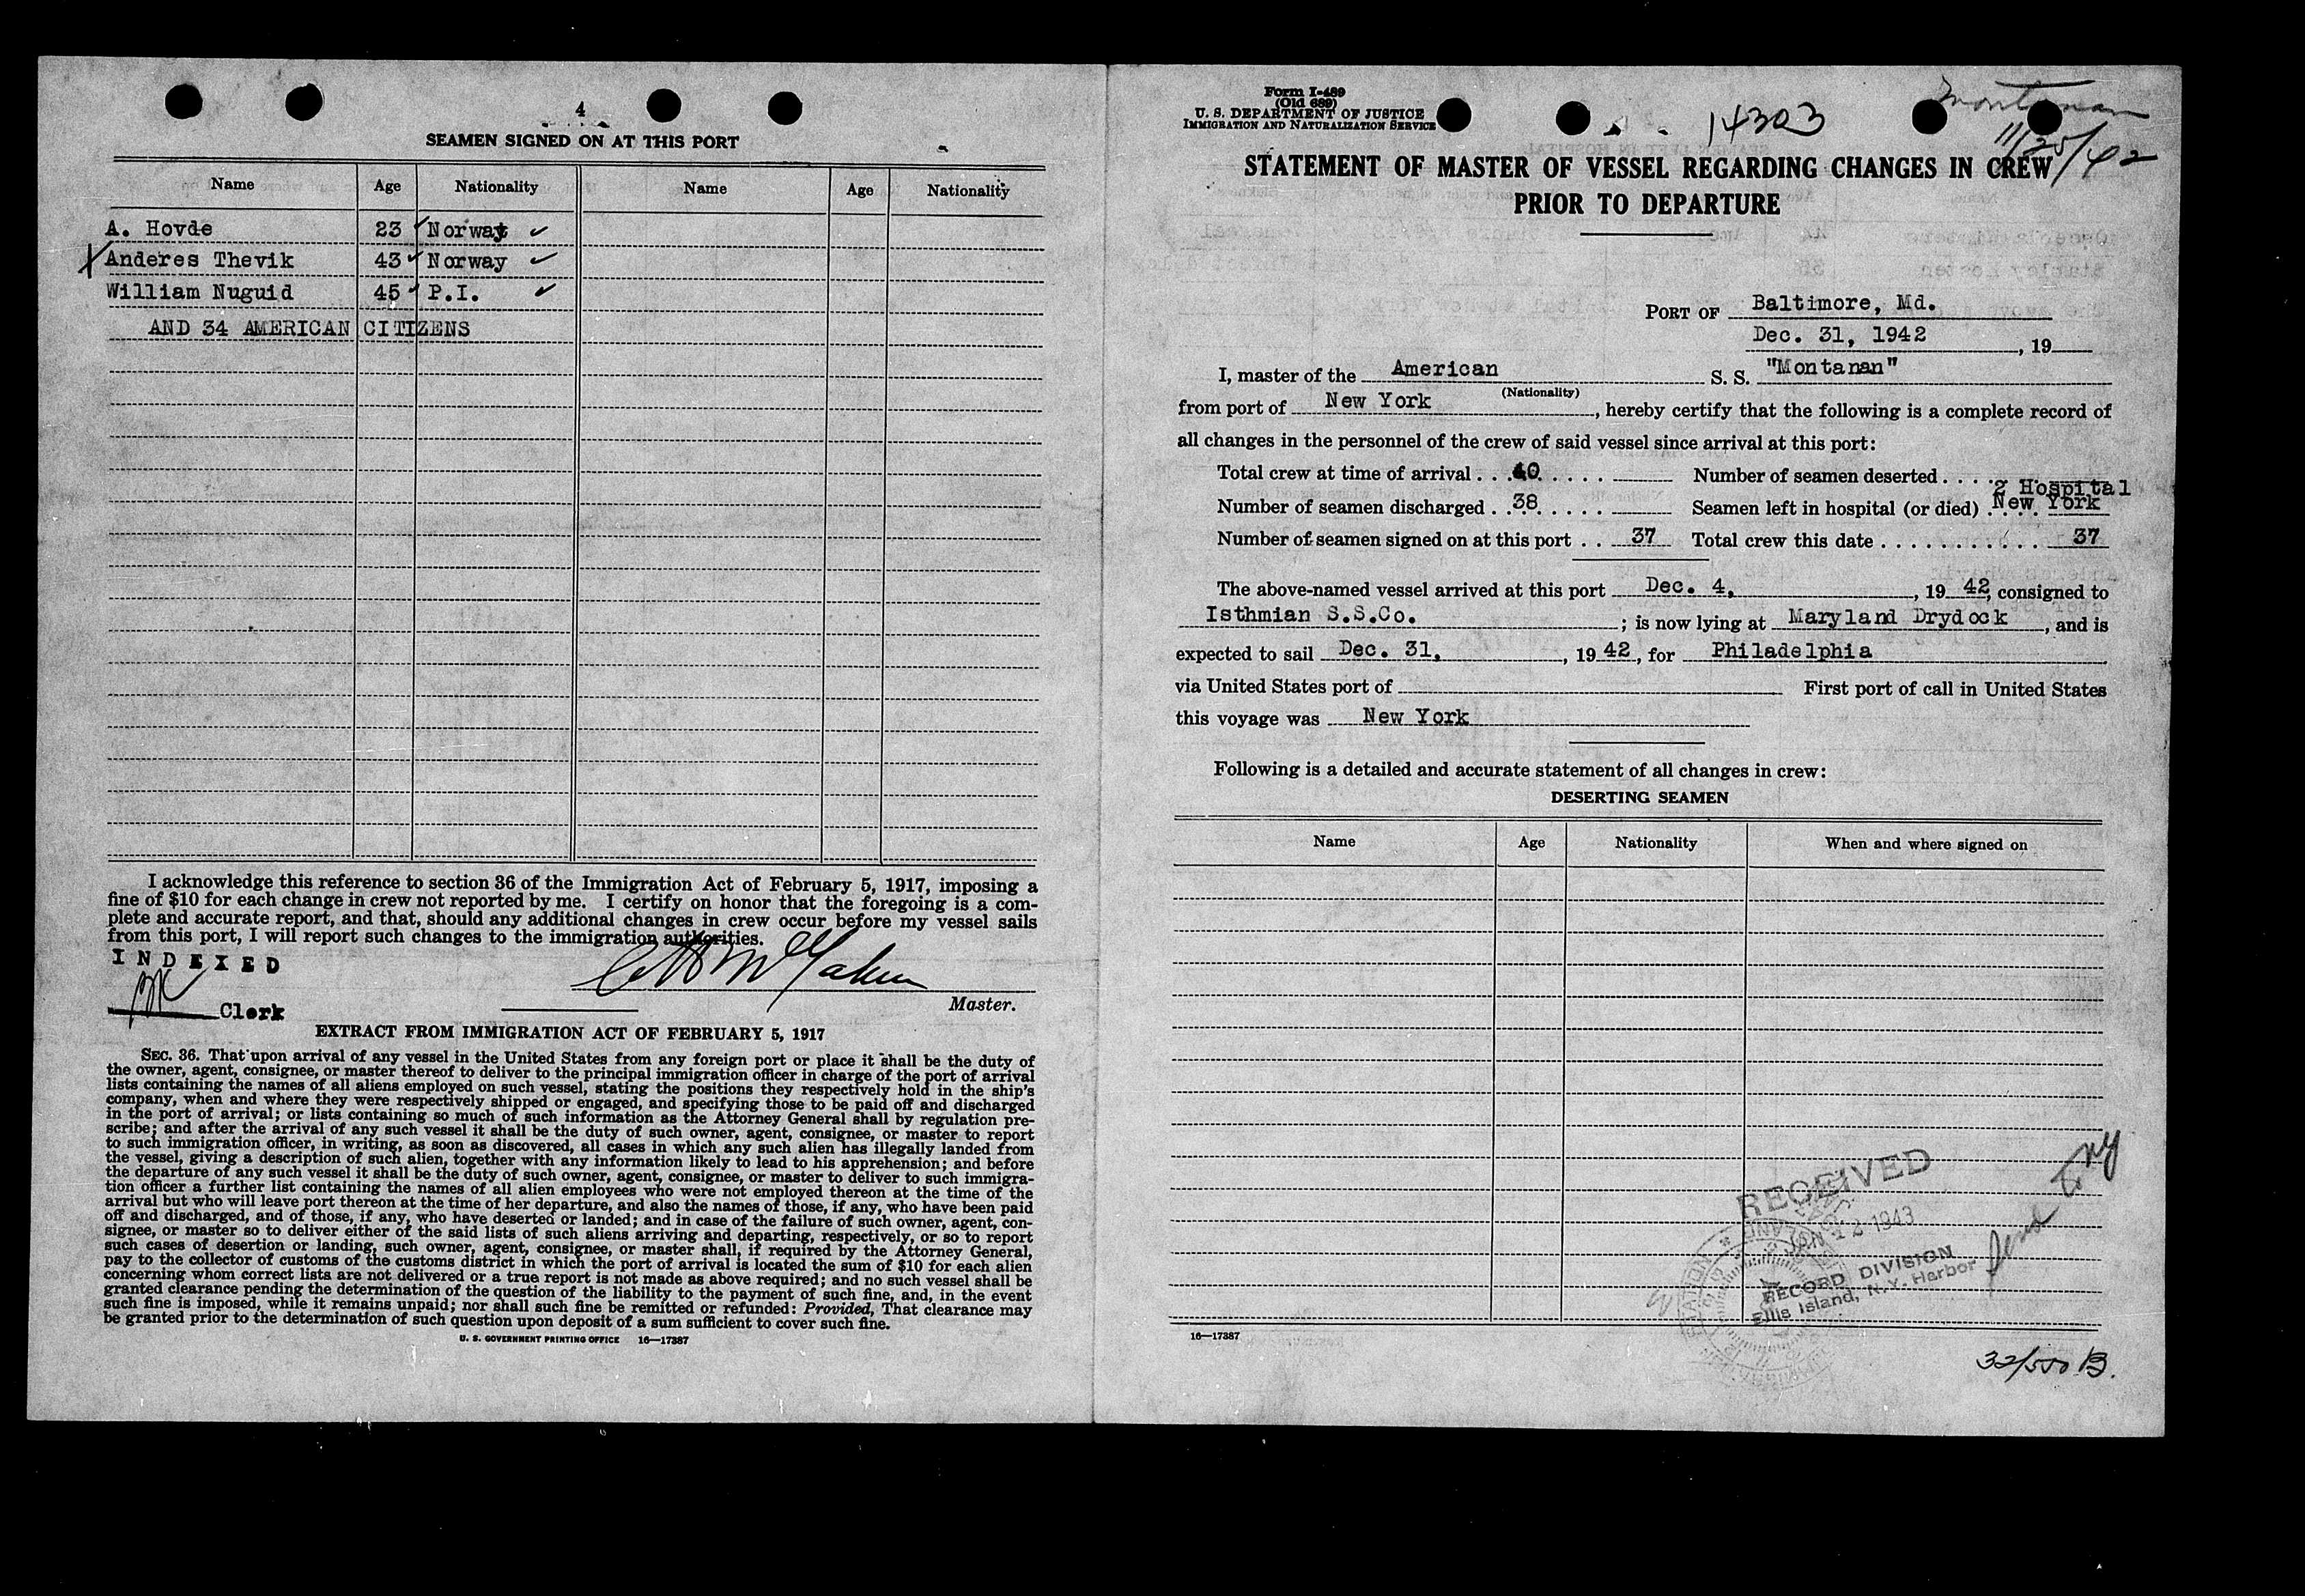 4
SEAMEN SIGNED ON AT THIS PORT
Name Age Nationality Name Age Nationality
A. Hovde 23 ✓ Norway ✓
X Anderes Thevik 43 ✓ Norway ✓
William Nuguid 45 ✓ P.I. ✓
AND 34 AMERICAN CITIZENS
I acknowledge this reference to section 36 of the Immigration Act of February 5, 1917, imposing a
fine of $10 for each change in crew not reported by me. I certify on honor that the foregoing is a com-
plete and accurate report, and that, should any additional changes in crew occur before my vessel sails
from this port, I will report such changes to the immigration authorities.
INDEXED
Clerk
Master.
EXTRACT FROM IMMIGRATION ACT OF FEBRUARY 5, 1917
SEC. 36. That upon arrival of any vessel in the United States from any foreign port or place it shall be the duty of
the owner, agent, consignee, or master thereof to deliver to the principal immigration officer in charge of the port of arrival
lists containing the names of all aliens employed on such vessel, stating the positions they respectively hold in the ship's
company, when and where they were respectively shipped or engaged, and specifying those to be paid off and discharged
in the port of arrival; or lists containing so much of such information as the Attorney General shall by regulation pre-
scribe; and after the arrival of any such vessel it shall be the duty of such owner, agent, consignee, or master to report
to such immigration officer, in writing, as soon as discovered, all cases in which any such alien has illegally landed from
the vessel, giving a description of such alien, together with any information likely to lead to his apprehension; and before
the departure of any such vessel it shall be the duty of such owner, agent, consignee, or master to deliver to such immigra-
tion officer a further list containing the names of all alien employees who were not employed thereon at the time of the
arrival but who will leave port thereon at the time of her departure, and also the names of those, if any, who have been paid
off and discharged, and of those, if any, who have deserted or landed; and in case of the failure of such owner, agent, con-
signee, or master so to deliver either of the said lists of such aliens arriving and departing, respectively, or so to report
such cases of desertion or landing, such owner, agent, consignee, or master shall, if required by the Attorney General,
pay to the collector of customs of the customs district in which the port of arrival is located the sum of $10 for each alien
concerning whom correct lists are not delivered or a true report is not made as above required; and no such vessel shall be
granted clearance pending the determination of the question of the liability to the payment of such fine, and, in the event
such fine is imposed, while it remains unpaid; nor shall such fine be remitted or refunded: Provided, That clearance may
be granted prior to the determination of such question upon deposit of a sum sufficient to cover such fine.
U. S. GOVERNMENT PRINTING OFFICE 16—17387
Form I-489
(Old 689)
U. S. DEPARTMENT OF JUSTICE
IMMIGRATION AND NATURALIZATION SERVICE
14303
Montanan
11/25/42
STATEMENT OF MASTER OF VESSEL REGARDING CHANGES IN CREW
PRIOR TO DEPARTURE
PORT OF Baltimore, Md.
Dec. 31, 1942, 19
I, master of the American S. S. "Montanan"
(Nationality)
from port of New York, hereby certify that the following is a complete record of
all changes in the personnel of the crew of said vessel since arrival at this port:
Total crew at time of arrival . . . 40 Number of seamen deserted . . . .
Number of seamen discharged . . 38 Seamen left in hospital (or died) 2 Hospital New York
Number of seamen signed on at this port . . 37 Total crew this date . . . . . . . . . . . 37
The above-named vessel arrived at this port Dec. 4, , 19 42, consigned to
Isthmian S.S.Co. ; is now lying at Maryland Drydock, and is
expected to sail Dec. 31, , 19 42, for Philadelphia
via United States port of First port of call in United States
this voyage was New York
Following is a detailed and accurate statement of all changes in crew:
DESERTING SEAMEN
Name Age Nationality When and where signed on
RECEIVED
JAN 12 1943
RECORD DIVISION
Ellis Island, N. Y. Harbor
16—17387
32/550 B.